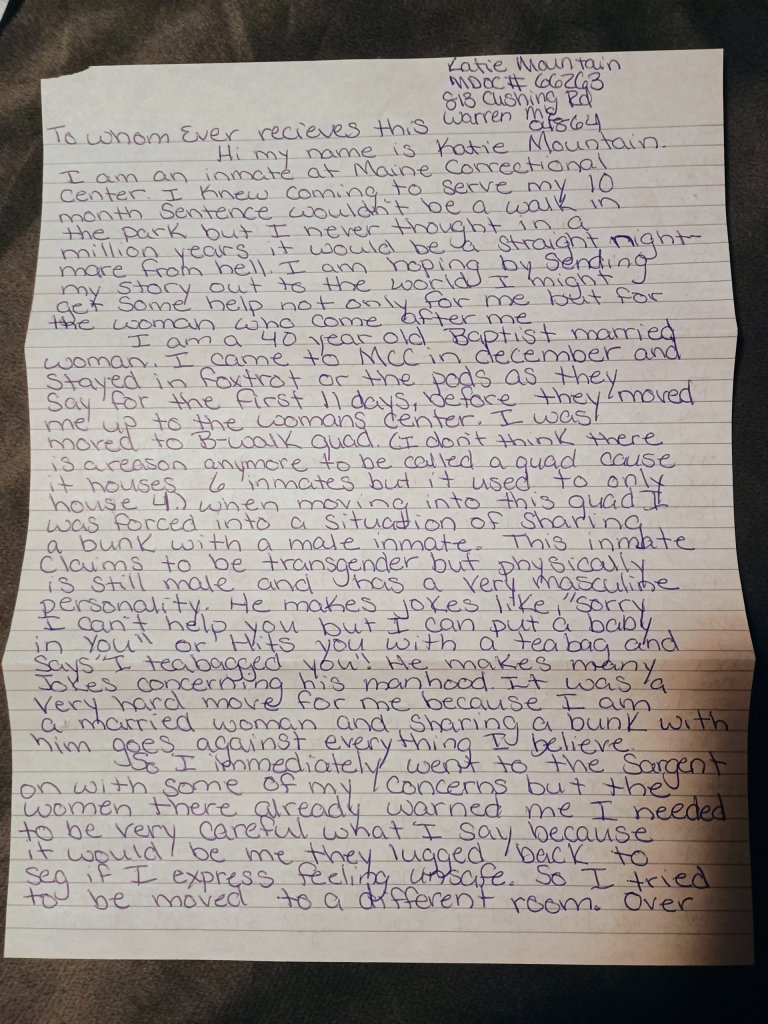 Katie Mountain
MDOC# 66263
813 Cushing Rd
Warren Me
04864
To whom Ever recieves this
Hi my name is Katie Mountain.
I am an inmate at Maine Correctional
Center. I knew coming to serve my 10
month sentence wouldn't be a walk in
the park but I never thought in a
million years it would be a straight night-
mare from hell. I am hoping by sending
my story out to the world I might
get some help not only for me but for
the woman who come after me
I am a 40 year old Baptist married
woman. I came to MCC in december and
stayed in foxtrot or the pods as they
say for the first 11 days, before they moved
me up to the womans center. I was
moved to B-walk quad. (I don't think there
is a reason anymore to be called a quad cause
it houses 6 inmates but it used to only
house 4.) when moving into this quad I
was forced into a situation of sharing
a bunk with a male inmate. This inmate
claims to be transgender but physically
is still male and has a very masculine
personality. He makes jokes like, "sorry
I can't help you but I can put a baby
in you" or Hits you with a teabag and
says "I teabagged you". He makes many
jokes concerning his manhood. It was a
very hard move for me because I am
a married woman and sharing a bunk with
him goes against everything I believe.
So I immediately went to the Sargent
on with some of my concerns but the
women there already warned me I needed
to be very careful what I say because
it would be me they lugged back to
seg if I express feeling unsafe. So I tried
to be moved to a different room. Over